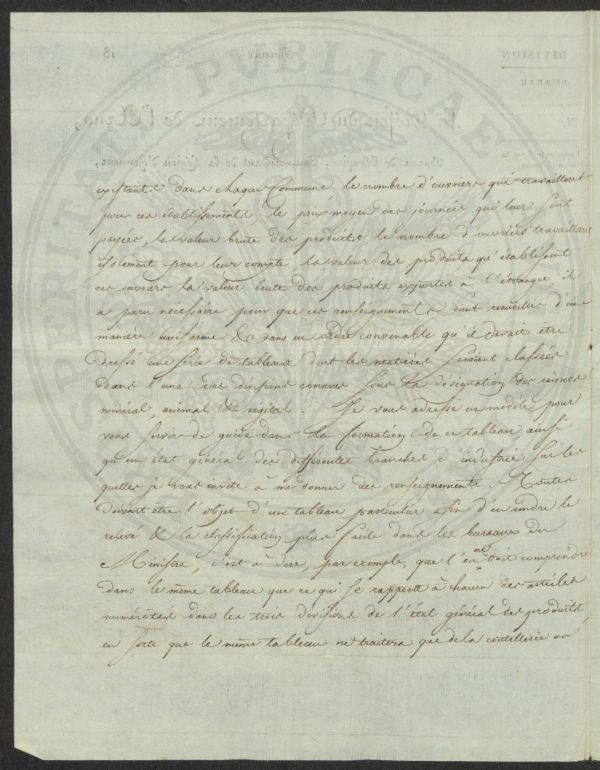 existant dans chaque Commune, le nombre d'ouvriers qui travaillent
pour ces établissements, le prix moyen des journées qui leur sont
payées, la valeur brute des produits, le nombre d'ouvriers travaillant
isolement pour leur compte la valeur des produits qu'établissent
ces ouvriers la valeur brute des produits exportés à l'étranger, il
a paru nécessaire pour que ces renseignements soient recueillis d'une
manière uniforme & dans un ordre convenable qu'il devait être
dressé une série de tableaux dont les matières seraient classées
dans l'une des divisions connues sous la désignation des règnes
minéral, animal & végétal. Je vous adresse un modèle pour
vous servir de guide dans la formation de ce tableau ainsi
qu'un état général des différentes branches d'industrie sur les
quelles je vous invite à me donner des renseignements. Toutes
doivent être l'objet d'un tableau particulier afin d'en rendre le
relevé & la classification plus facile dans les bureaux du
Ministre, c'est à dire, par exemple, que l'on ne doit comprendre
dans le même tableau que ce qui se rapporte à chacun des articles
numérotés dans les trois divisions de l'état général des produits,
en sorte que le même tableau ne traitera que de la coutellerie ou